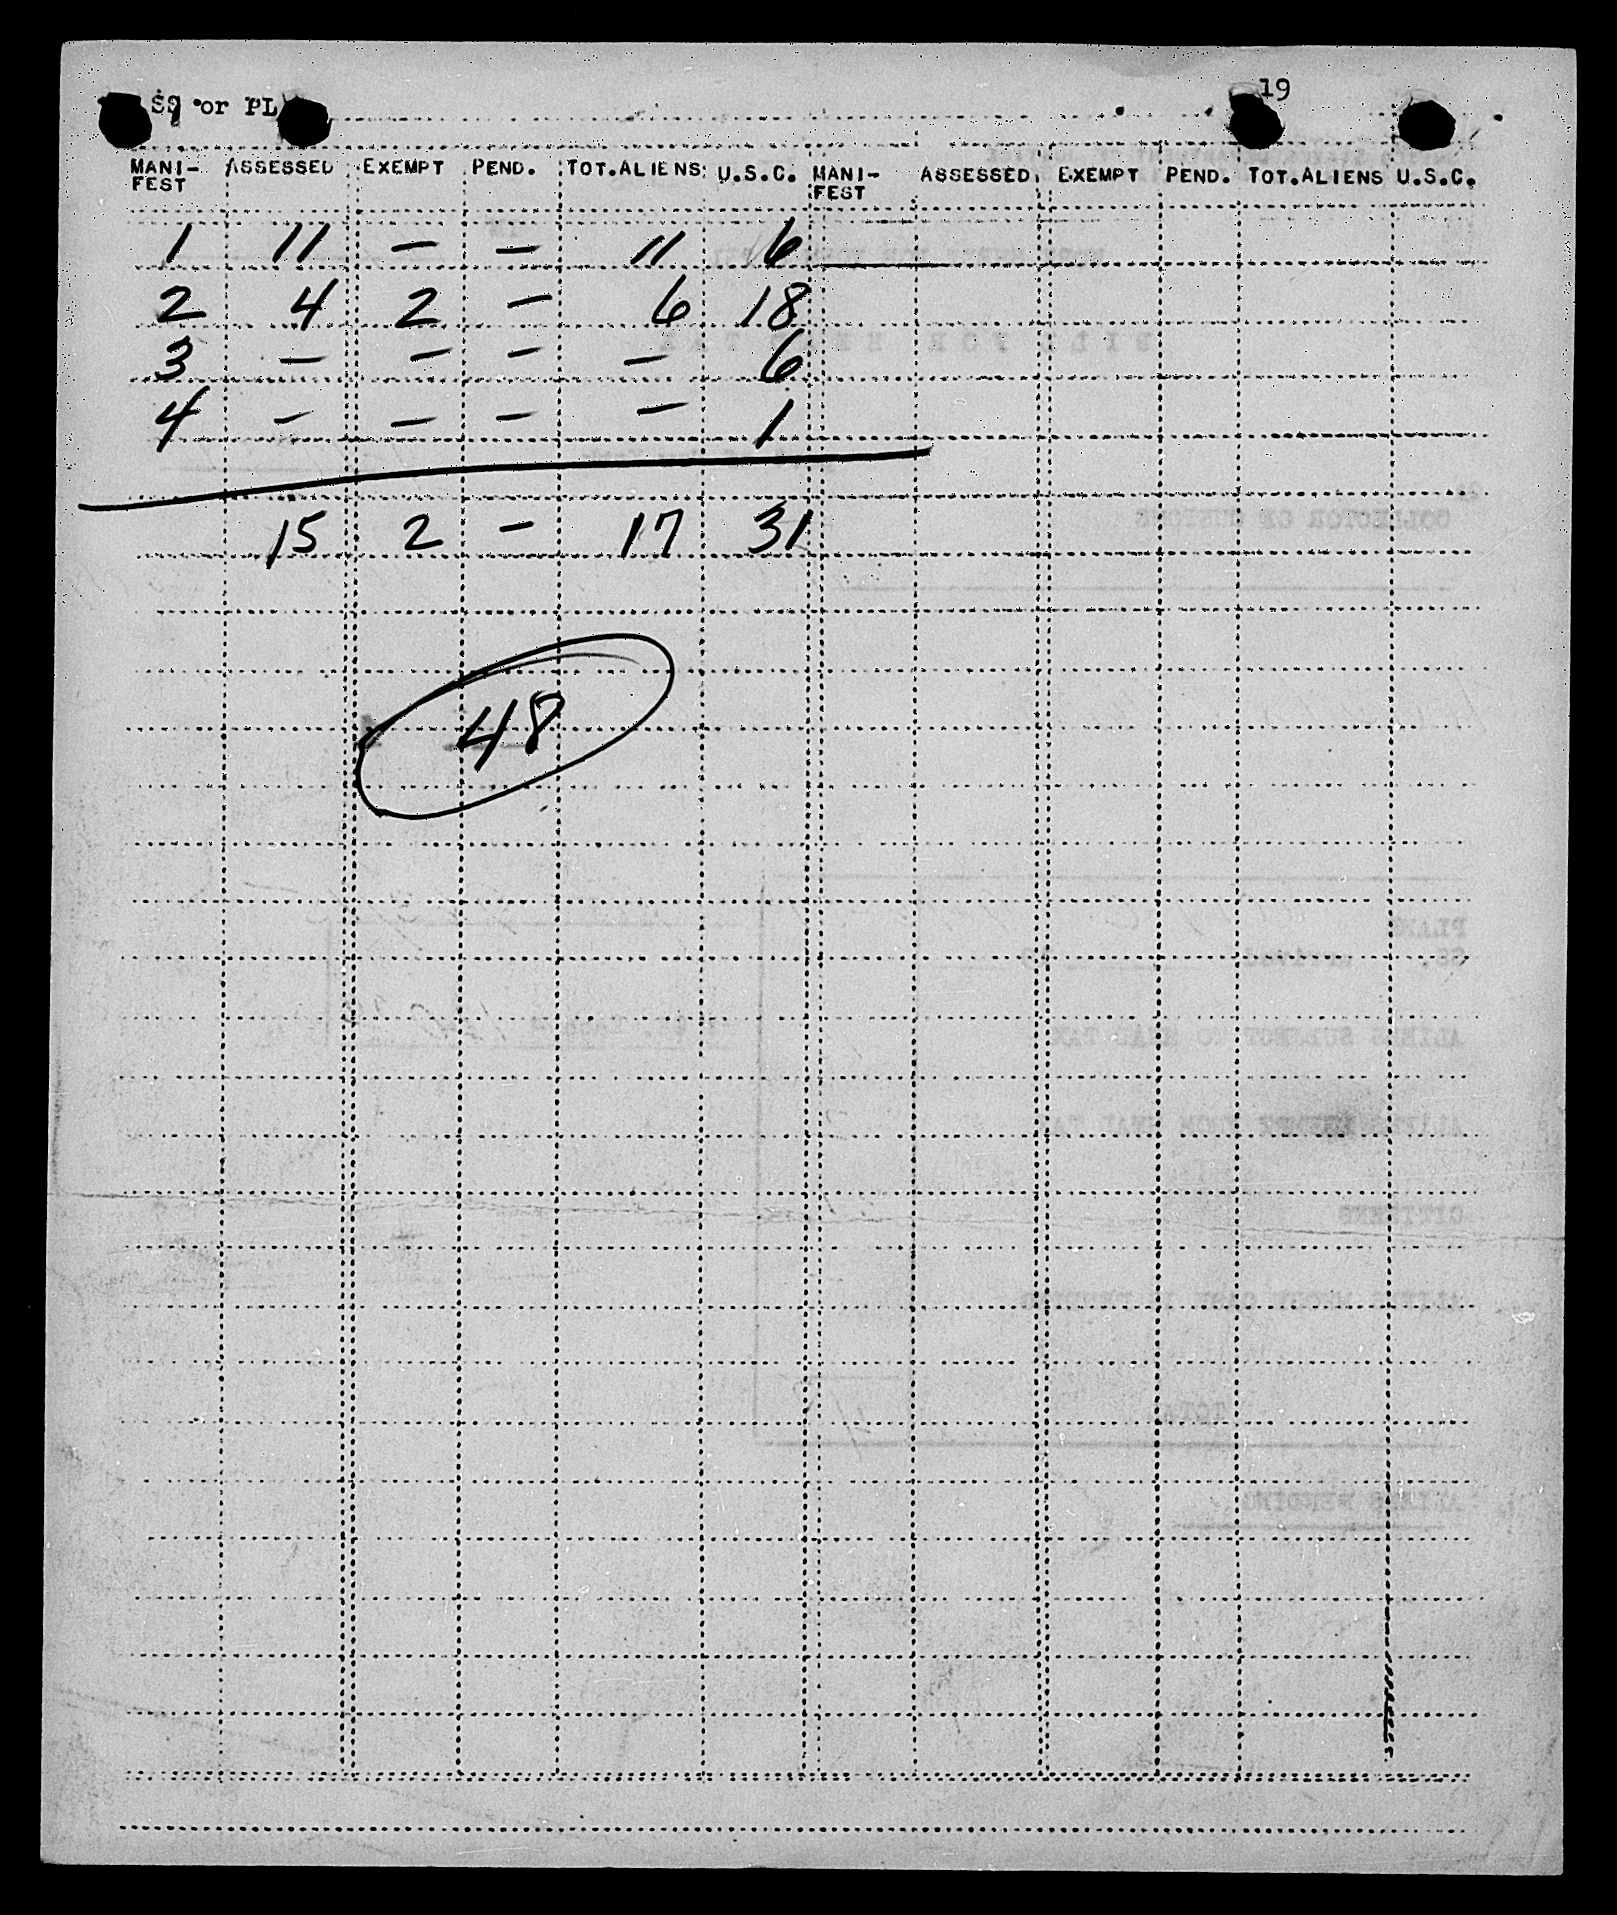 SS or PL 19
MANI-FEST ASSESSED EXEMPT PEND. TOT.ALIENS U.S.C. MANI-FEST ASSESSED EXEMPT PEND. TOT.ALIENS U.S.C.
1 11 — — 11 6
2 4 2 — 6 18
3 — — — — 6
4 — — — — 1
15 2 — 17 31
48